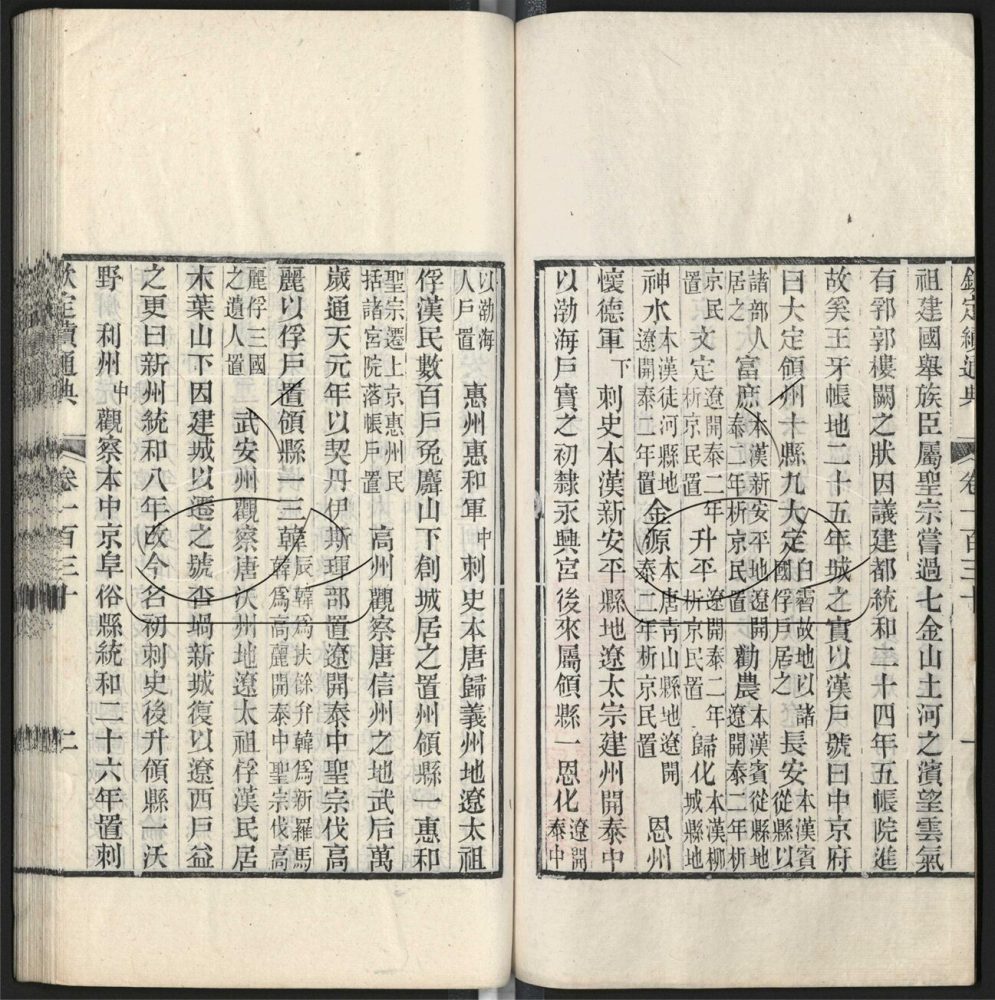 欽定續通典 卷一百三十 一
祖建國舉族臣屬聖宗嘗過七金山土河之濱望雲氣
有郛郭樓闕之狀因議建都統和二十四年五帳院進
故奚王牙帳地二十五年城之實以漢戶號曰中京府
曰大定領州十縣九大定白霫故地以諸國俘戶居之 長安本漢賓從縣以
諸部人居之 富庶本漢新安平地遼開泰二年析京民置 勸農本漢賓從縣地遼開泰二年析
京民置 文定遼開泰二年析京民置 升平遼開泰二年析京民置 歸化本漢柳城縣地
神水本漢徒河縣地遼開泰二年置 金源本唐青山縣地遼開泰二年析京民置 恩州
懷德軍下 刺史本漢新安平縣地遼太宗建州開泰中
以渤海戶實之初隸永興宮後來屬領縣一恩化遼開泰中
以渤海人戶置 惠州惠和軍中 刺史本唐歸義州地遼太祖
俘漢民數百戶兔麛山下創城居之置州領縣一惠和
聖宗遷上京惠州民括諸宮院落帳戶置 高州觀察唐信州之地武后萬
歲通天元年以契丹伊斯琿部置遼開泰中聖宗伐高
麗以俘戶置領縣一三韓辰韓爲扶餘弁韓爲新羅馬韓爲高麗開泰中聖宗伐高
麗俘三國之遺人置 武安州觀察唐沃州地遼太祖俘漢民居
木葉山下因建城以遷之號杏堝新城復以遼西戶益
之更曰新州統和八年改今名初刺史後升領縣一沃
野 利州中 觀察本中京阜俗縣統和二十六年置刺
欽定續通典 卷一百三十 二